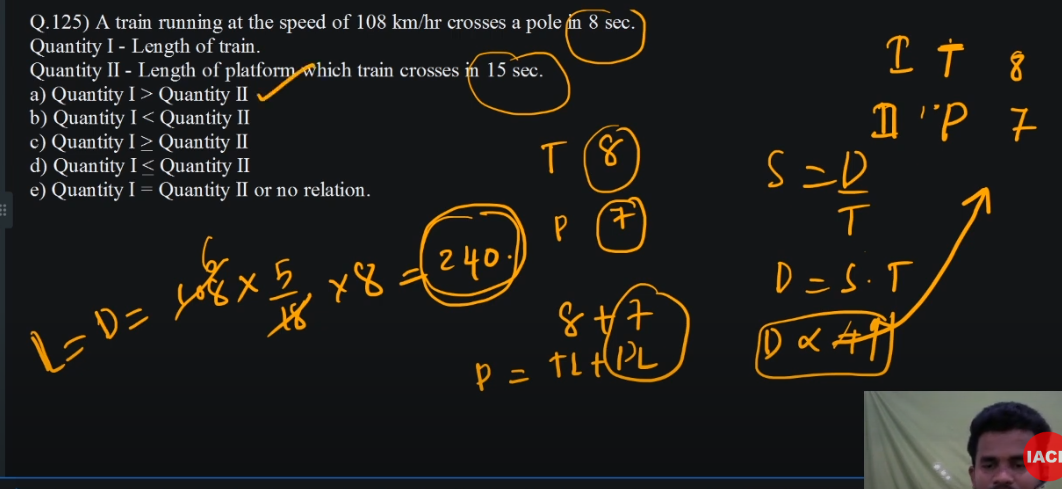 Q.125) A train running at the speed of 108 km/hr crosses a pole in 8 sec.
Quantity I - Length of train.
Quantity II - Length of platform which train crosses in 15 sec.
a) Quantity I > Quantity II
b) Quantity I < Quantity II
c) Quantity I ≥ Quantity II
d) Quantity I ≤ Quantity II
e) Quantity I = Quantity II or no relation.
I T 8
II P 7
T 8
P 7
S = D/T
D = S. T
L = D = 108 × 5/18 × 8 = 240.
6
8 + 7
P = TL + PL
D ∝
IACE